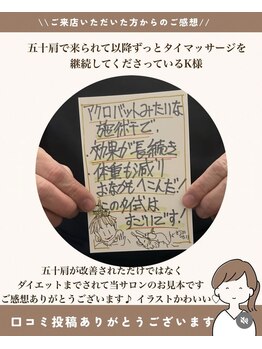 \\ ご来店いただいた方からのご感想 //
五十肩で来られて以降ずっとタイマッサージを
継続してくださっているK様
アクロバットみたいな
施術で、
効果が長続き
体重も減り
おなかもへこんだ!
この方式は
すごいです!
五十肩が改善されただけではなく
ダイエットまでされて当サロンのお見本です
ご感想ありがとうございます♪ イラストかわいい
口コミ投稿ありがとうございます